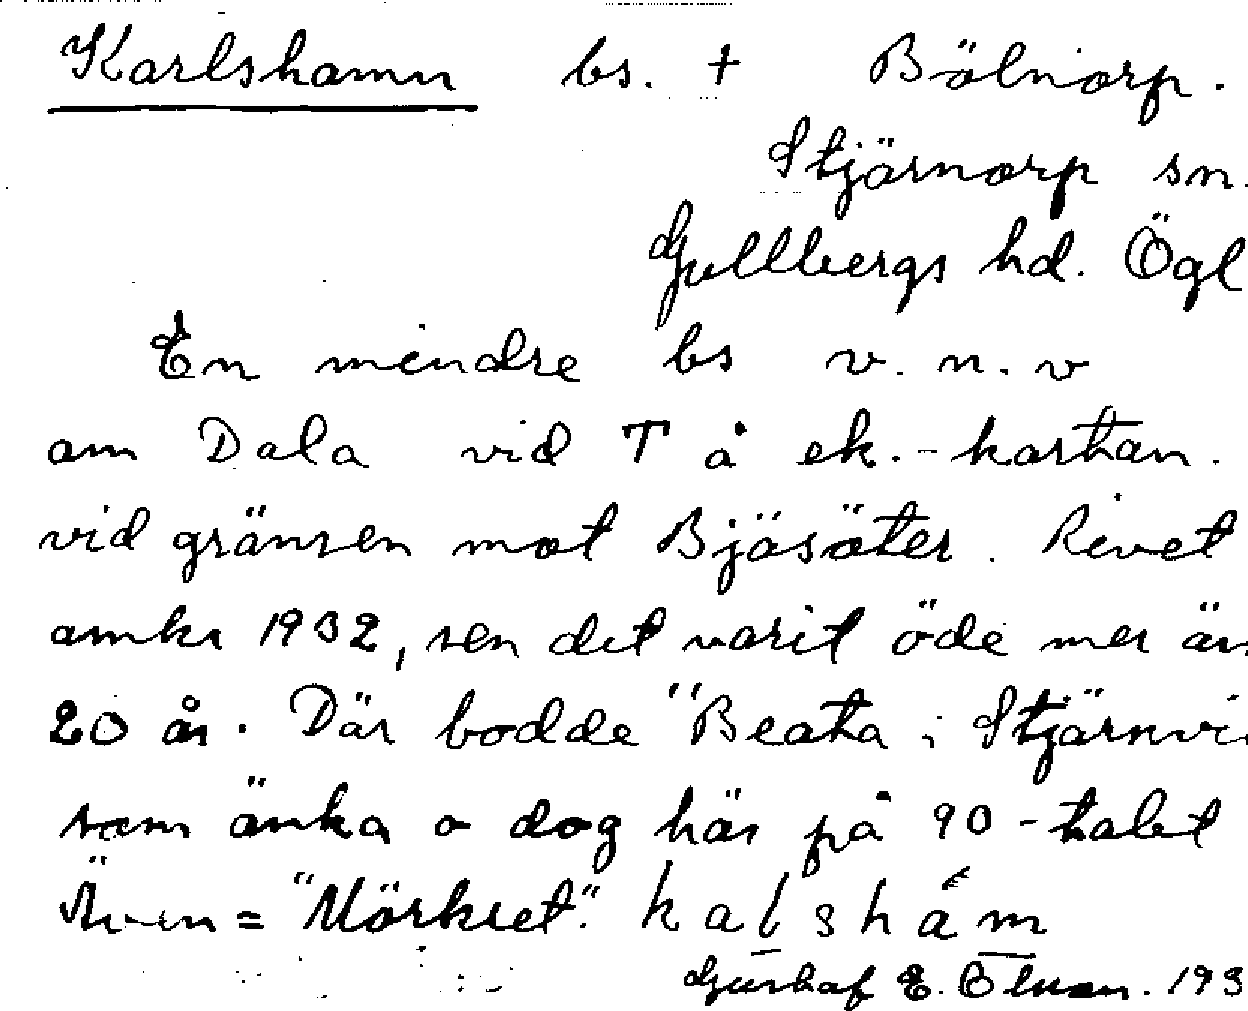 Karlshamn bs. + Bölnorp.
Stjärnorp sn.
Gullbergs hd. Ögl
En mindre bs v. n. v
om Dala vid T å ek.-kartan.
vid gränsen mot Bjäsäter. Rivet
omkr 1932, sen det varit öde mer än
20 år. Där bodde "Beata i Stjärnvi
som änka o dog här på 90-talet
Även = "Mörkret". kalshåm
E. 193